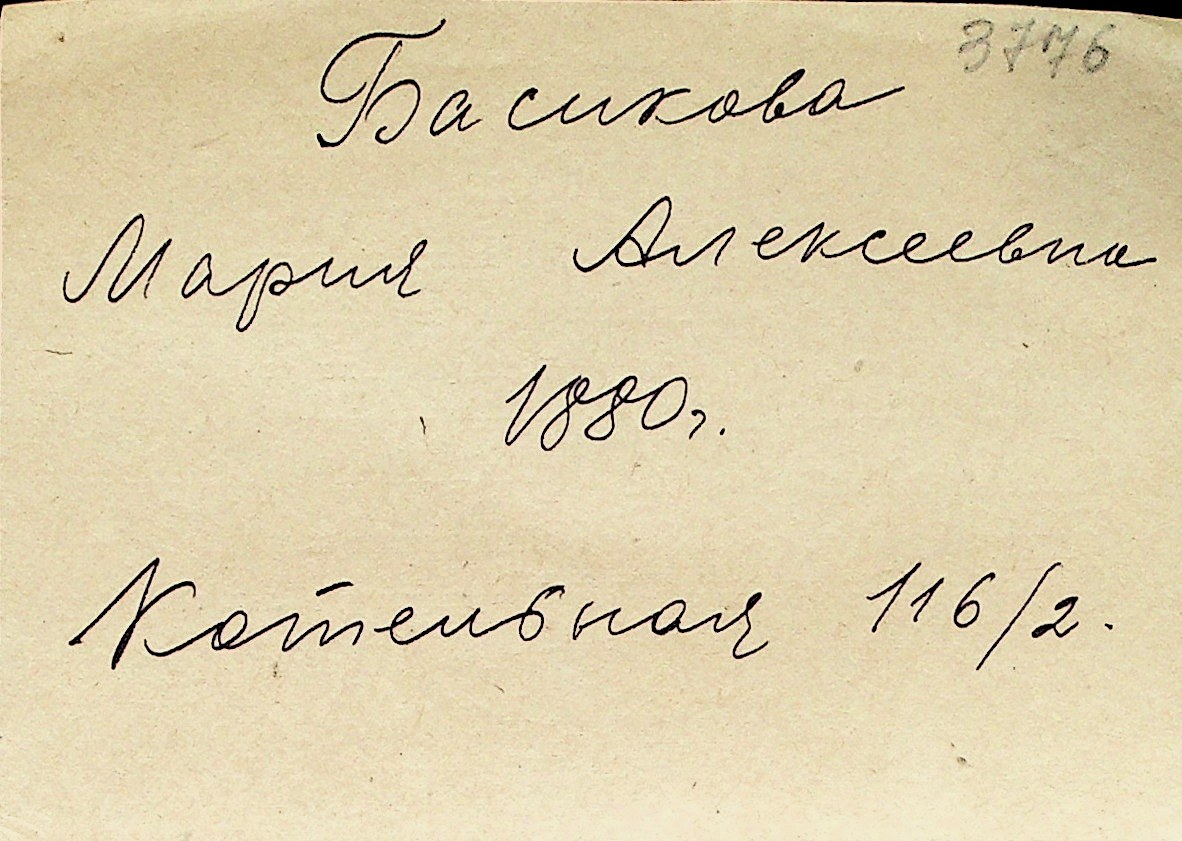 3776
Басикова
Мария Алексеевна
1880г.
Котельная 116/2.